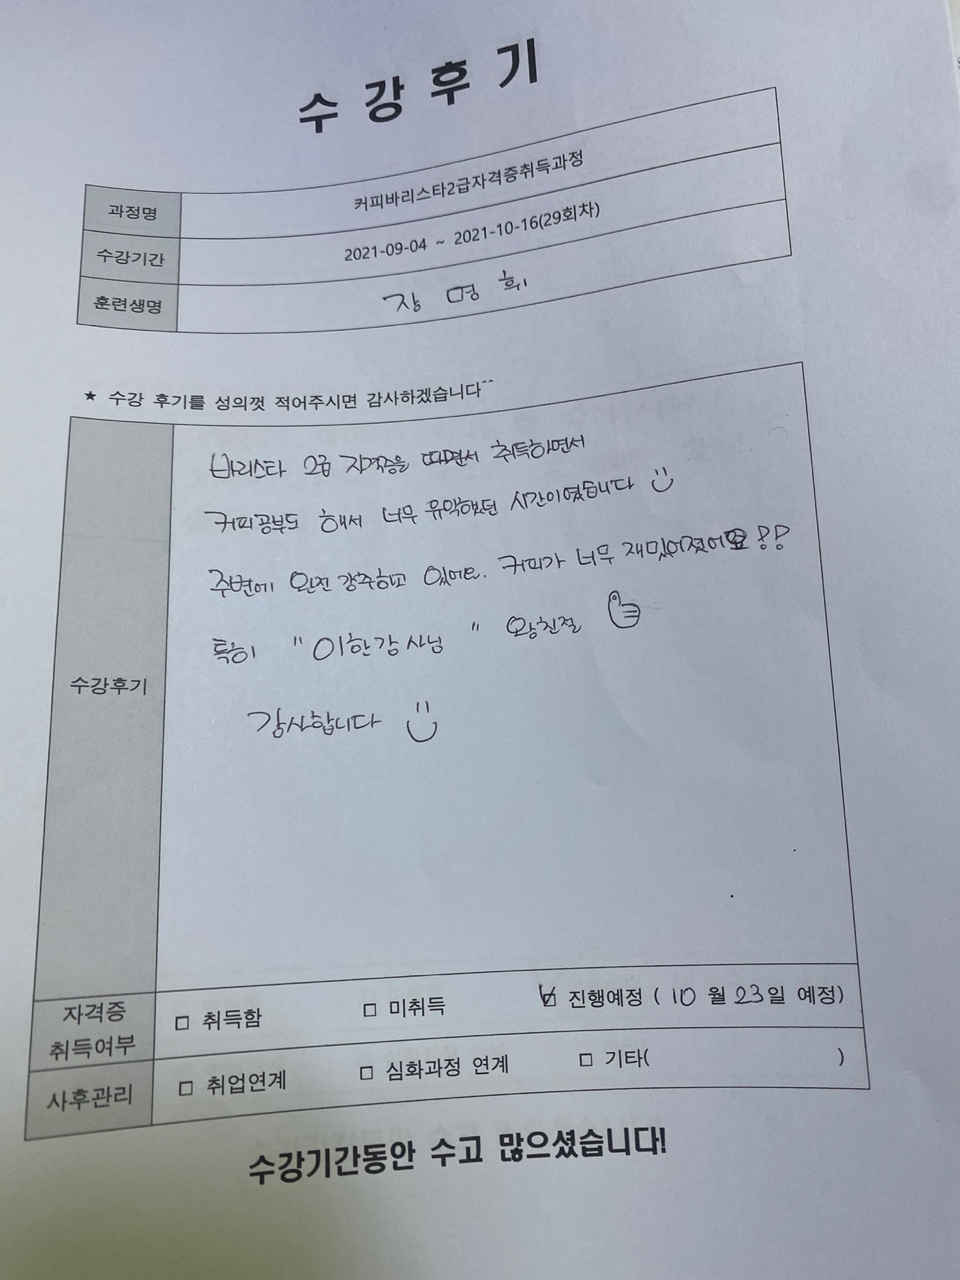 수강후기
과정명 커피바리스타2급자격증취득과정
수강기간 2021-09-04 ~ 2021-10-16(29회차)
훈련생명 장명휘
★ 수강 후기를 성의껏 적어주시면 감사하겠습니다^^
수강후기
바리스타 2급 자격증을 따면서 취득하면서
커피공부도 해서 너무 유익했던 시간이였습니다
주변에 완전 강추하고 있어요. 커피가 너무 재밌어졌어요!!
특히 "이한강사님" 왕친절
감사합니다
자격증 취득여부 □ 취득함 □ 미취득 ☑ 진행예정 ( 10 월 23일 예정)
사후관리 □ 취업연계 □ 심화과정 연계 □ 기타( )
수강기간동안 수고 많으셨습니다!